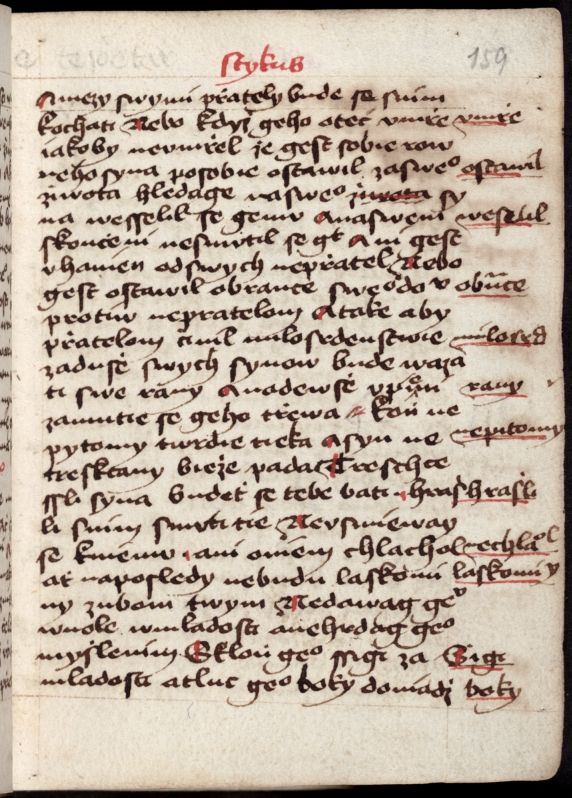 Stykus 159
Amezy swymi přately bude se snim
kochati Nebo kdyz geho otec vmre vmře
iakoby nevmřel ze gest sobie row
neho syna pozobie ostawil zaswe° ostawil
ziwota hledage naswe° ziwota sy
na wesselil se genw Anaswem weselil
skonceni nesmvtil se gt Ani gest
vhanien od swych nepřatel Nebo
gest ostawil obrance swe°do v obrāce
protiw nepratelom Atake aby
přatelom činil milosrdenstwie milosrd
zadusě swych synow bude waza
ti swe rany Anadewse vpȯni rany
zamutie se geho třewa kon ne
pytomy twrdie tieka Asyn ne nepitomy
tresktany bieze padac Treschce
ssli syna budet se tebe bati hraš hrašli
li snim smvti tie Nevsmieway
se kniemv ani oniem chlachol nechlaol
at naposledy nebudu laskomi laskomi y
ny zubom twym Nedaway ge°
wuole wmladosti anehrdag ge°
myslenim Sklon ge° ssigi za Sige
mladosti atluc ge° boky doniadz boky